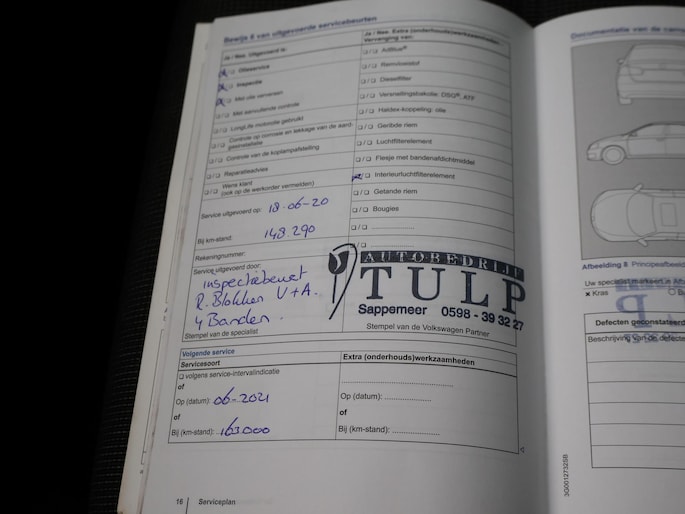 Bewijs 6 van uitgevoerde servicebeurten
Ja / Nee Uitgevoerd is:
Olieservice
Inspectie
Met olie verversen
Met aanvullende controle
LongLife motorolie gebruikt
Controle op corrosie en lekkage van de aardgasinstallatie
Controle van de koplampafstelling
Reparatieadvies
Wens klant
(ook op de werkorder vermelden)
Service uitgevoerd op: 18-06-20
Bij km-stand: 148.290
Rekeningnummer:
Service uitgevoerd door:
inspectiebeurt
R. Blokken V+A.
4 Banden.
Stempel van de specialist
Ja / Nee Extra (onderhouds)werkzaamheden
Vervanging van:
AdBlue®
Remvloeistof
Dieselfilter
Versnellingsbakolie: DSG®, ATF
Haldex-koppeling: olie
Geribde riem
Luchtfilterelement
Flesje met bandenafdichtmiddel
Interieurluchtfilterelement
Getande riem
Bougies
AUTOBEDRIJF
TULP
Sappemeer 0598 - 39 32 27
Stempel van de Volkswagen Partner
Volgende service
Servicesoort
volgens service-intervalindicatie
of
Op (datum): 06-2021
of
Bij (km-stand): 163.000
Extra (onderhouds)werkzaamheden
Op (datum):
of
Bij (km-stand):
16 Serviceplan
Documentatie van de carro
Afbeelding 8 Principeafbeeld
Uw specialist markeert in Afb
x Kras
Defecten geconstateerd
Beschrijving van de defecte
3G0012732SB